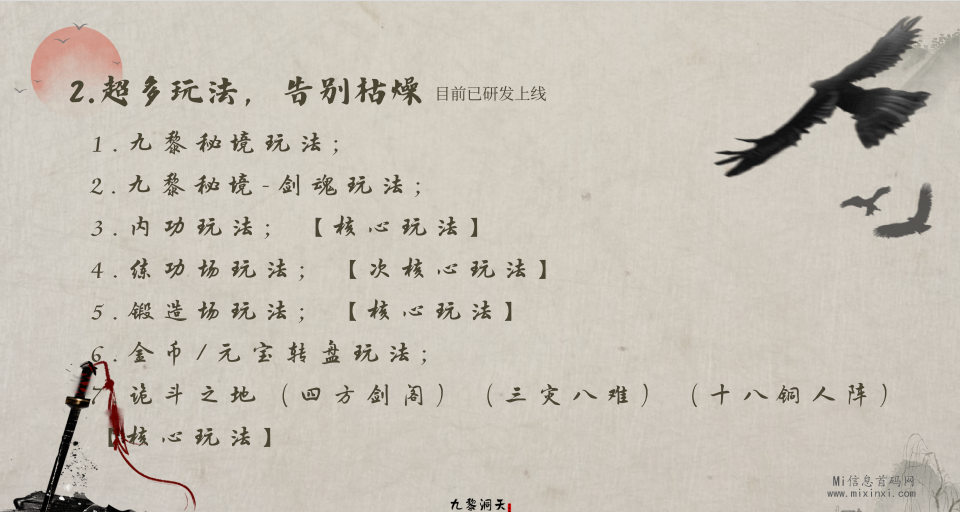 2.超多玩法，告别枯燥 目前已研发上线
1.九黎秘境玩法；
2.九黎秘境-剑魂玩法；
3.内功玩法； 【核心玩法】
4.练功场玩法； 【次核心玩法】
5.锻造场玩法； 【核心玩法】
6.金币/元宝转盘玩法；
7 诡斗之地（四方剑阁）（三灾八难）（十八铜人阵）
【核心玩法】
Mi信息首码网
www.mixinxi.com
九黎洞天